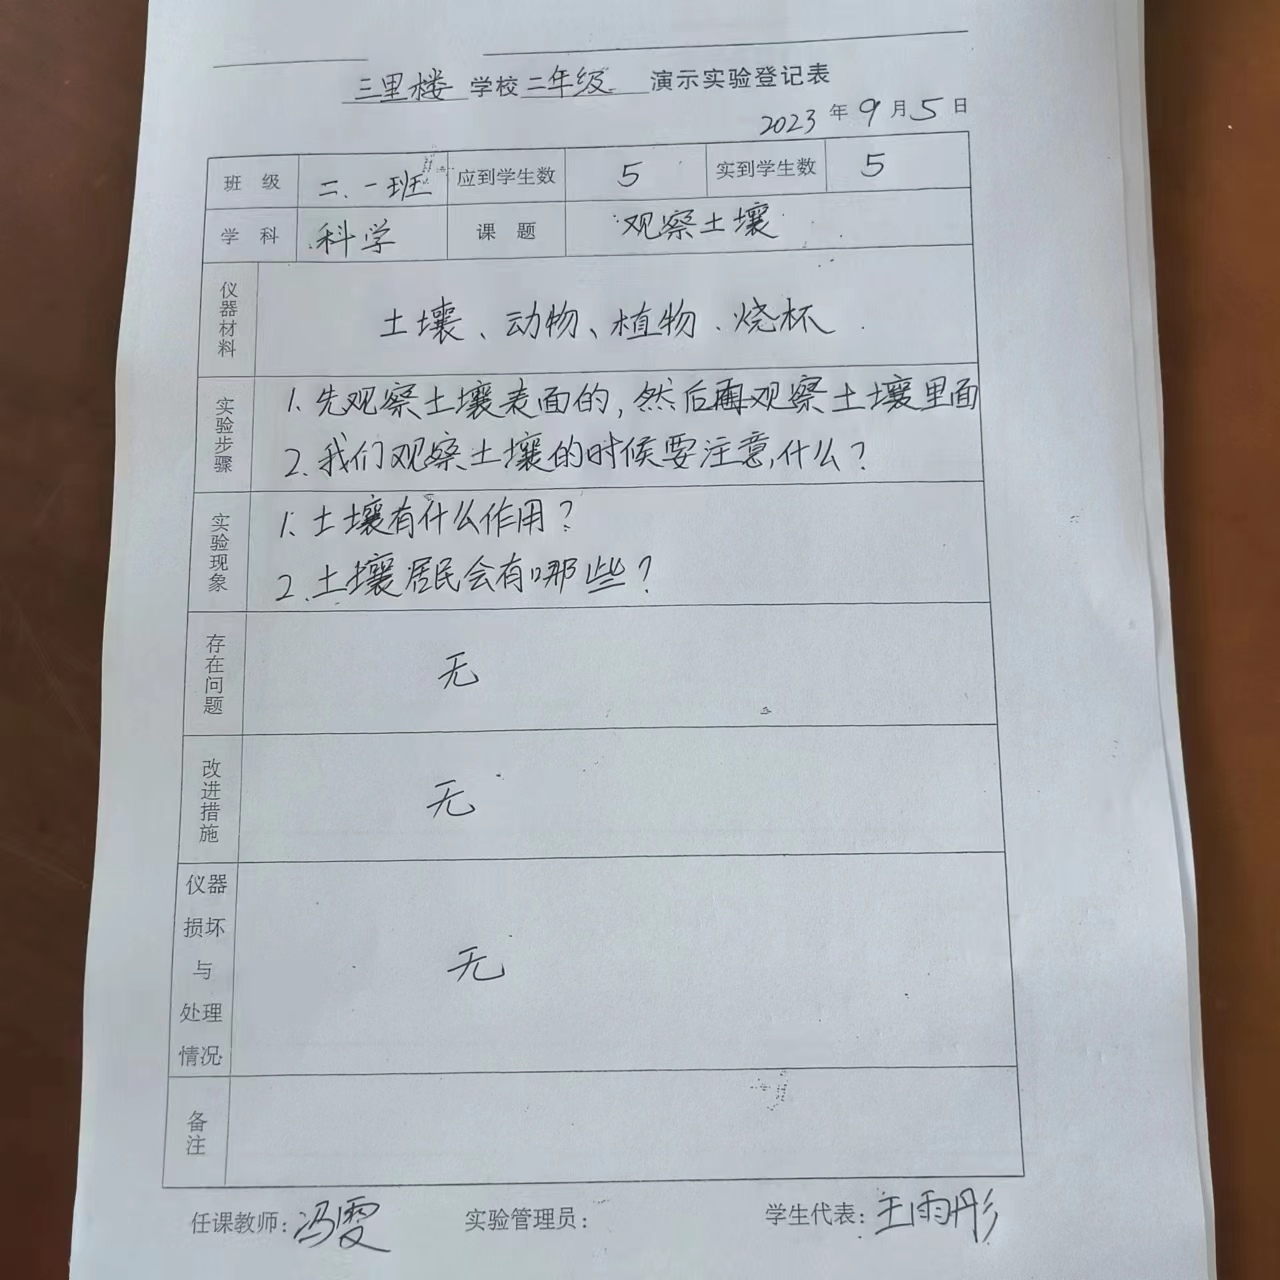 三里楼 学校二年级 演示实验登记表
2023 年 9 月 5 日
班 级 二.一班 应到学生数 5 实到学生数 5
学 科 科学 课 题 观察土壤
仪器材料 土壤、动物、植物、烧杯.
实验步骤 1.先观察土壤表面的,然后再观察土壤里面
2.我们观察土壤的时候要注意,什么?
实验现象 1.土壤有什么作用?
2.土壤居民会有哪些?
存在问题 无
改进措施 无
仪器
损坏
与 无
处理
情况
备注
任课教师:冯雯 实验管理员: 学生代表:王雨彤